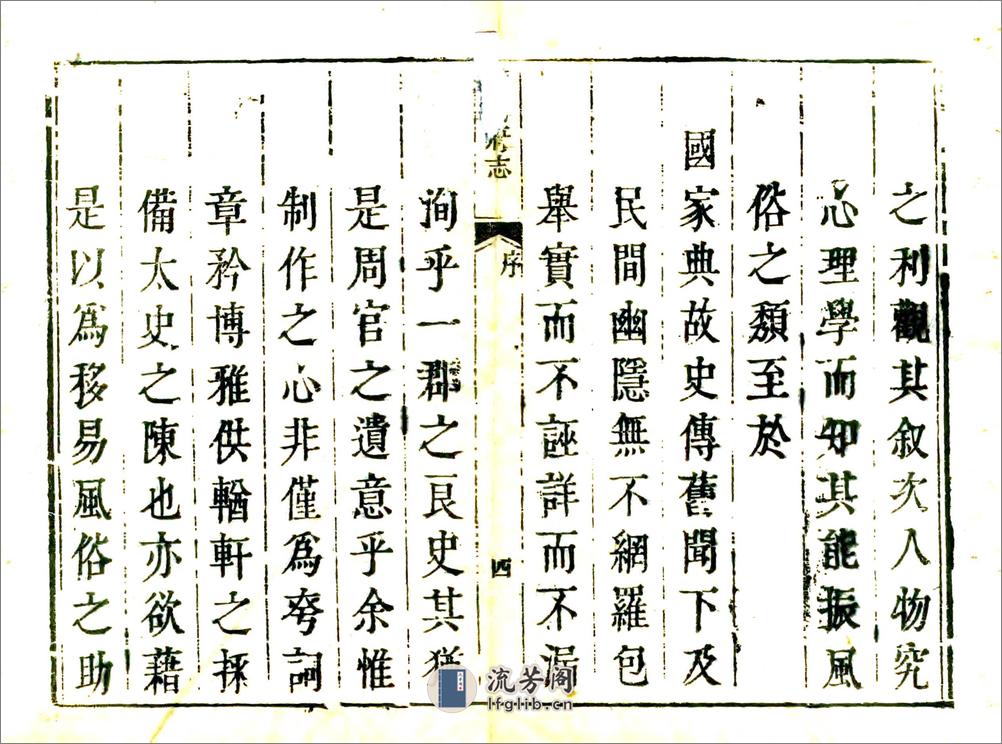 之利觀其叙次人物究
心理學而知其能振風
俗之類至於
國家典故史傳舊聞下及
民間幽隱無不網羅包
舉實而不誣詳而不漏
府志
序
四
洵乎一郡之良史其猶
是周官之遺意乎余惟
制作之心非僅為夸詞
章矜博雅供輶軒之採
備太史之陳也亦欲藉
是以為移易風俗之助
流芳阁
lfglib.cn